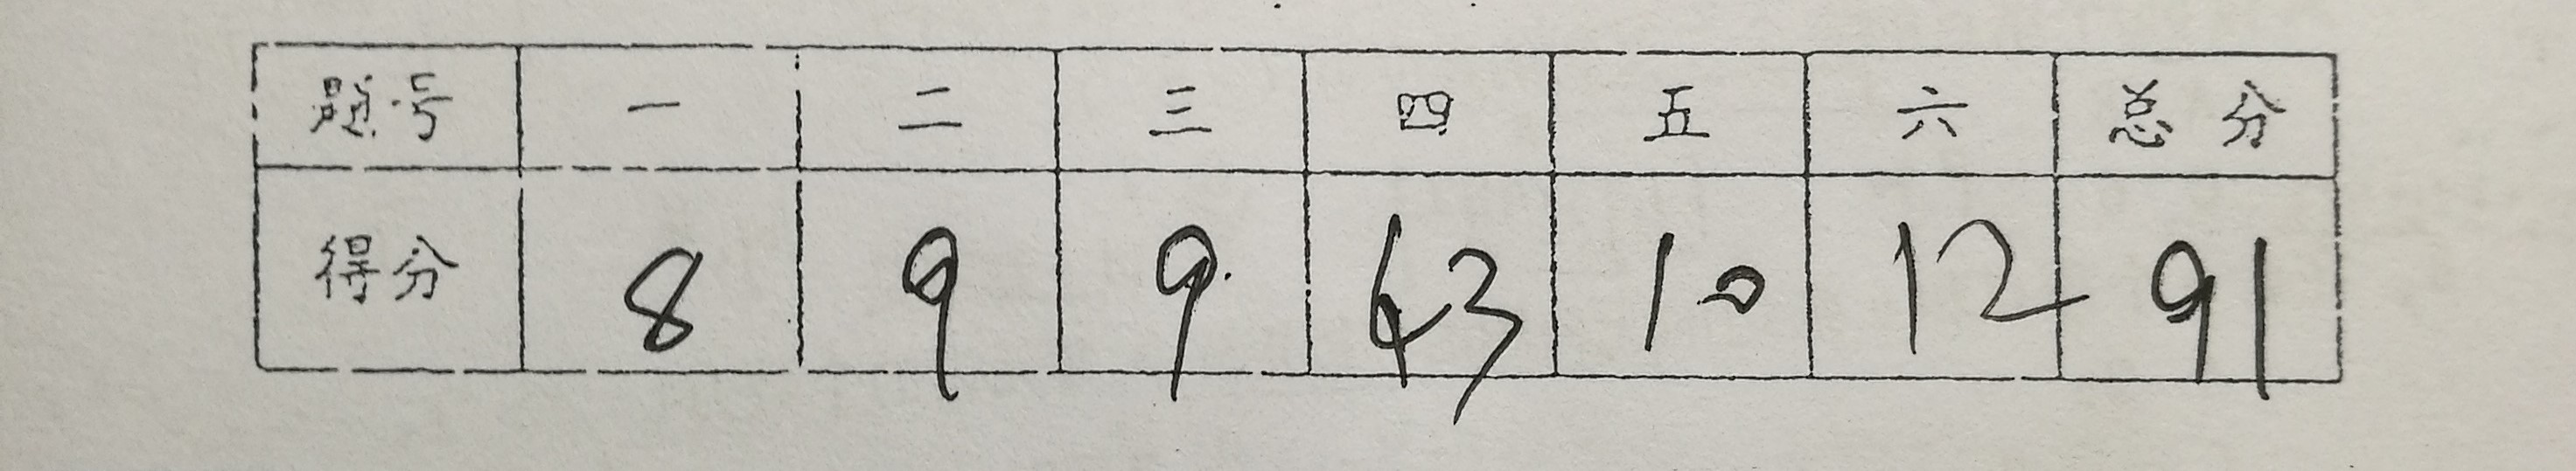 题号 一 二 三 四 五 六 总分
得分 8 9 9 43 10 12 91